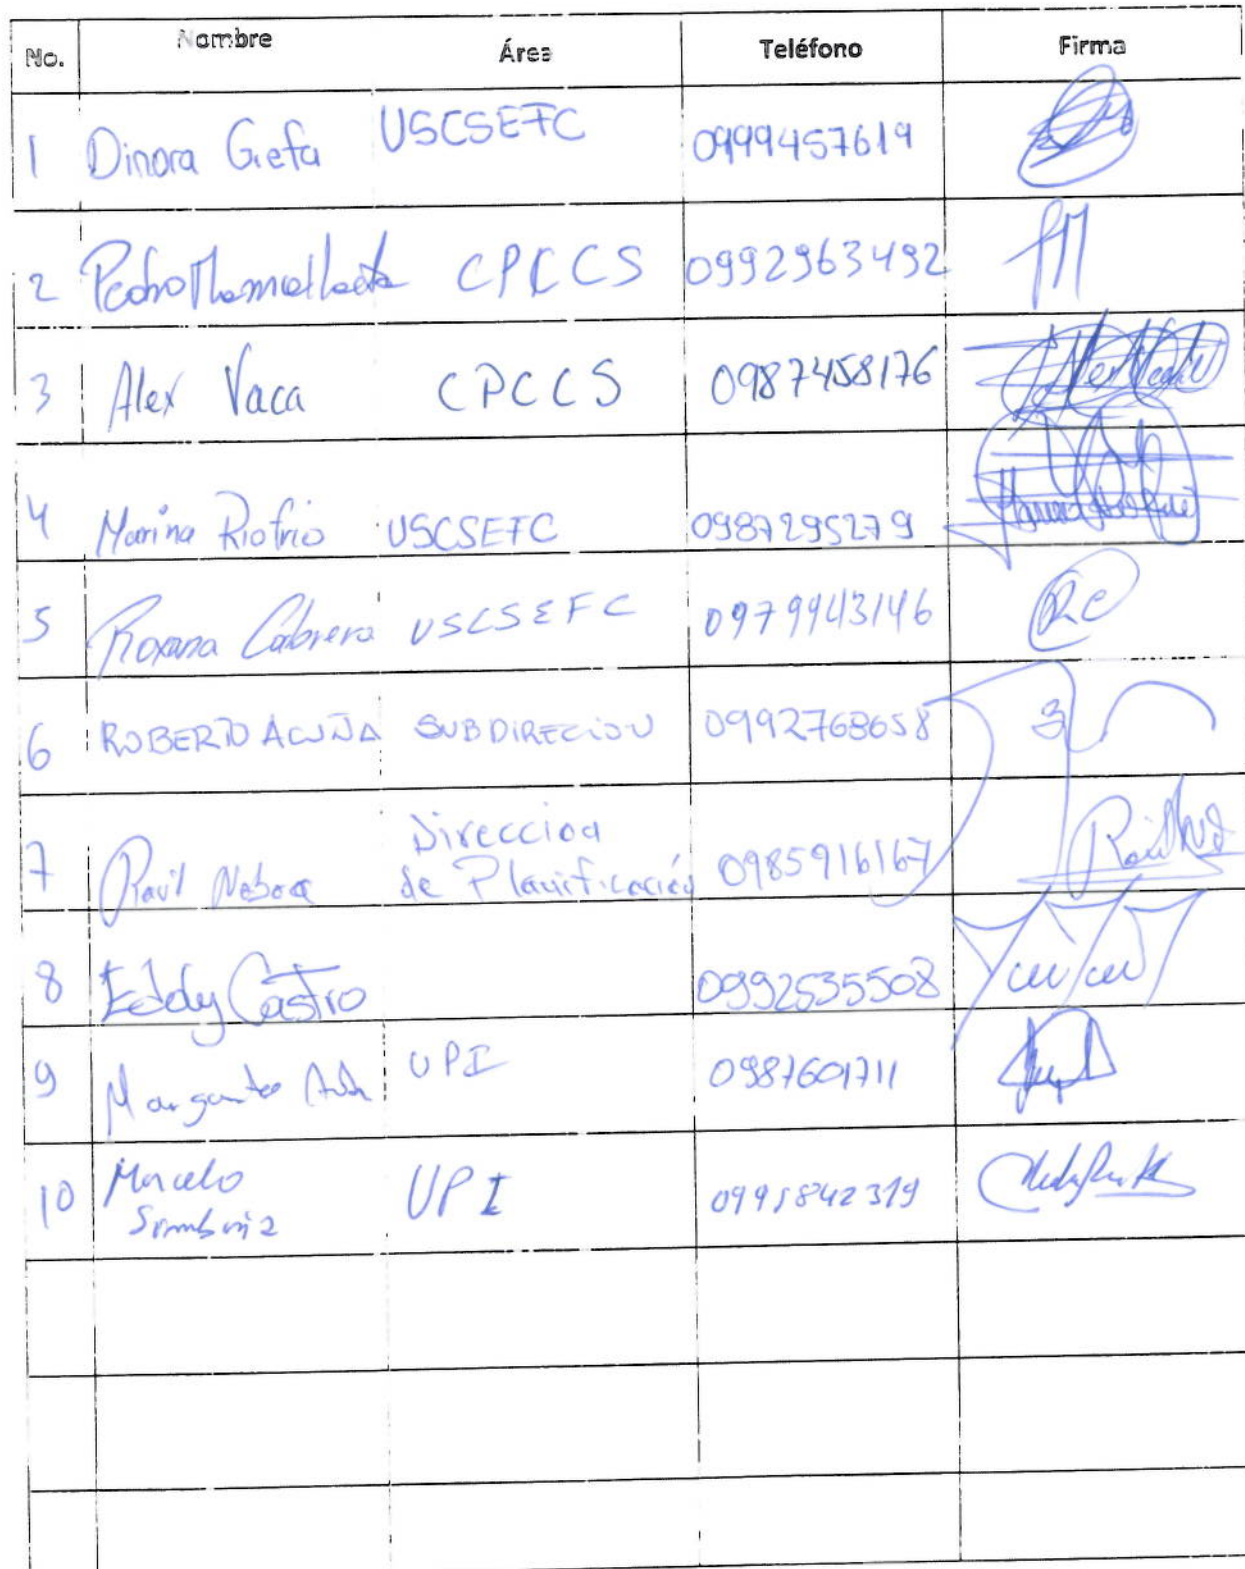 No. Nombre Área Teléfono Firma
1 Dinora Grefa USCSEFC 0999457619
2 Pedro CPCCS 0992963492
3 Alex Vaca CPCCS 0987458176
4 Marina Riofrio USCSEFC 0987295279
5 Roxana Cabrera USCSEFC 0979943146 RC
6 ROBERTO ACUÑA SUBDIRECCION 0992768658
7 Raúl Neboa Direccion
de Planificación 0985916167
8 Eddy Castro 0992535508
9 Margarita UPI 0987601711
10 Marcelo UPI 0995842319